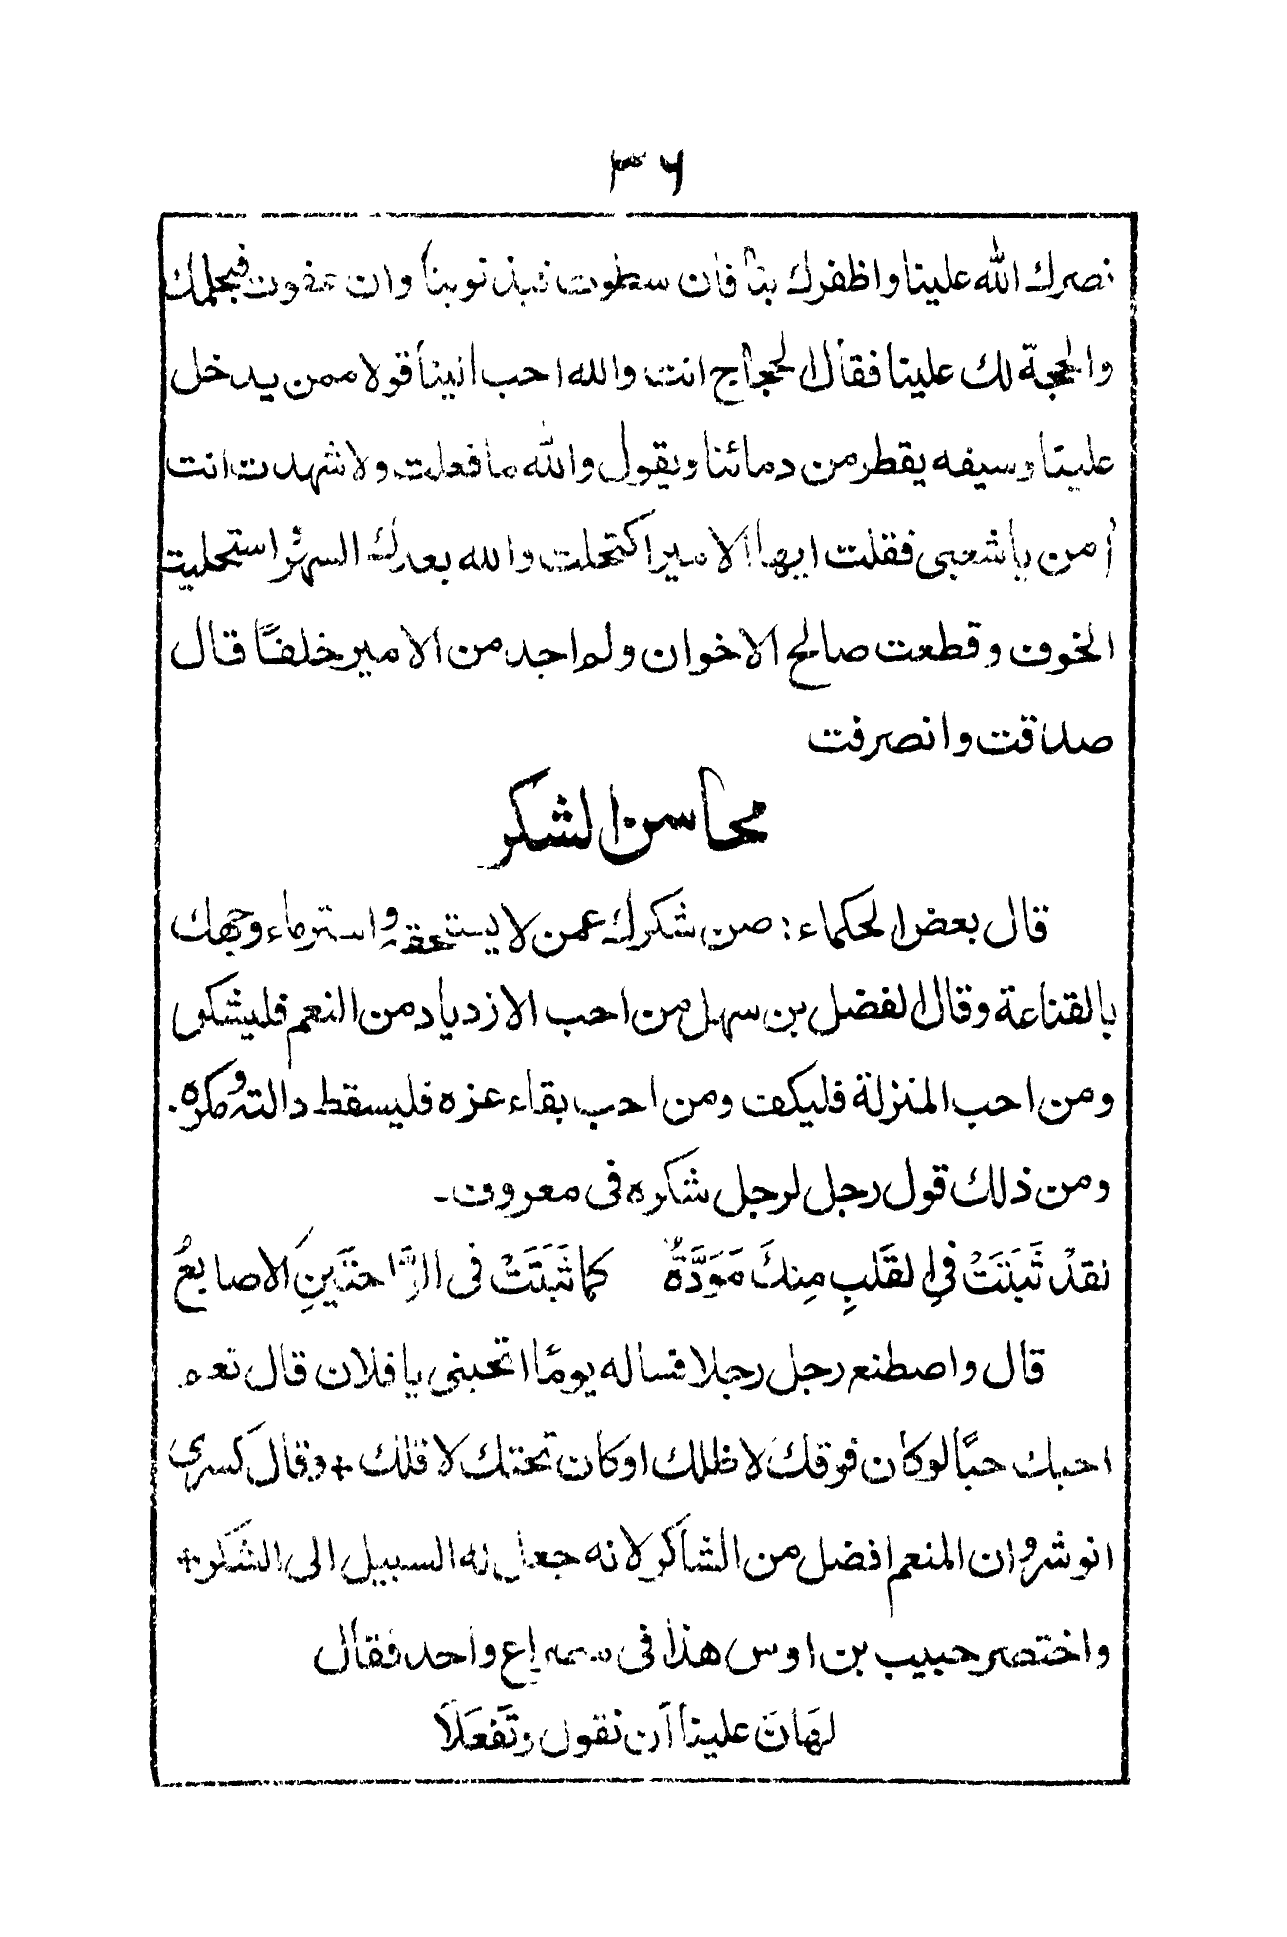 ۳۶
نصرك الله علينا واظفرك بنا فان سطوت فبذنوبنا وان عفوت فبحلمك
والحجة لك علينا فقال الحجاج انت والله احب الينا قولا ممن يدخل
علينا وسيفه يقطر من دمائنا ويقول والله ما فعلت ولا شهدت انت
آمن يا شعبى فقلت ايها الامير اكتحلت والله بعدك السهر واستحليت
الخوف وقطعت صالح الاخوان ولم اجد من الامير خلفًا قال
صدقت وانصرفت
محاسن الشكر
قال بعض الحكماء: صن شكرك عمن لا يستحقه واستر ماء وجهك
بالقناعة وقال الفضل بن سهل من احب الازدياد من النعم فليشكر
ومن احب المنزلة فليكف ومن احب بقاء عزه فليسقط دالته ومكره.
ومن ذلك قول رجل لرجل شكره فى معروف۔
لقدْ ثَبَتَتْ فِي القَلبِ مِنكَ مَوَدَّةٌ كما ثَبَتَتْ فى الرَّاحتَينِ الاصابعُ
قال واصطنع رجل رجلا فساله يومًا اتحبنى يا فلان قال نعم
احبك حبًّا لو كان فوقك لاظلك او كان تحتك لاقلك + وقال كسرى
انوشروان المنعم افضل من الشاكر لانه جعل له السبيل الى الشكر +
واختصر حبيب بن اوس هذا فى مصراع واحد فقال
لهَانَ علينا أن نقول وتَفعَلَا